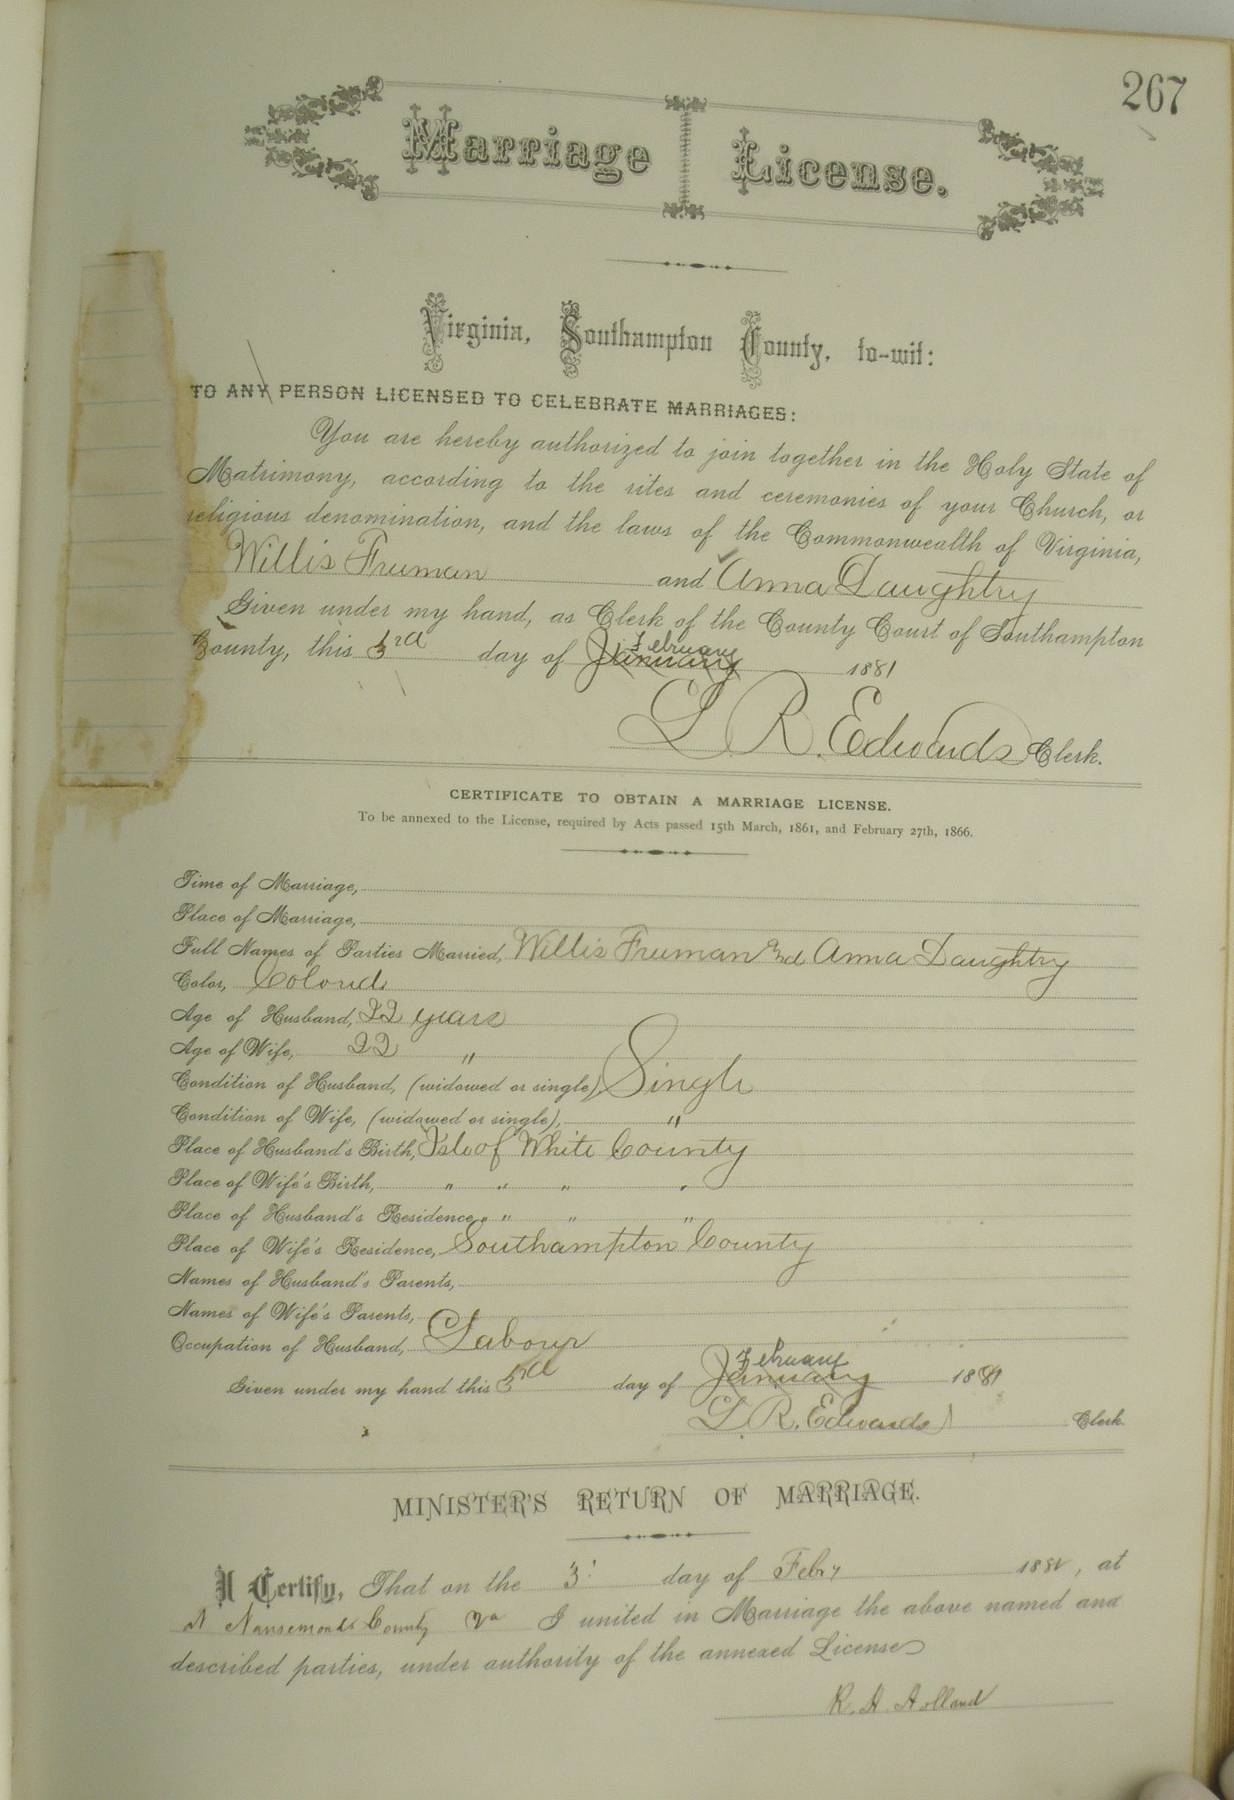 267
Marriage License.
Virginia, Southampton County, to-wit:
TO ANY PERSON LICENSED TO CELEBRATE MARRIAGES:
You are hereby authorized to join together in the Holy State of
Matrimony, according to the rites and ceremonies of your Church, or
religious denomination, and the laws of the Commonwealth of Virginia,
Willis Freeman and Anna Daughtry
Given under my hand, as Clerk of the County Court of Southampton
County, this 3rd day of January February 1881
L. R. Edwards Clerk.
CERTIFICATE TO OBTAIN A MARRIAGE LICENSE.
To be annexed to the License, required by Acts passed 15th March, 1861, and February 27th, 1866.
Time of Marriage,
Place of Marriage,
Full Names of Parties Married, Willis Freeman and Anna Daughtry
Color, Colored
Age of Husband, 22 years
Age of Wife, 22 "
Condition of Husband, (widowed or single) Single
Condition of Wife, (widowed or single), "
Place of Husband's Birth, Isle of White County
Place of Wife's Birth, " " " "
Place of Husband's Residence, " " " "
Place of Wife's Residence, Southampton County
Names of Husband's Parents,
Names of Wife's Parents,
Occupation of Husband, Labour
Given under my hand this 3rd day of January February 1881
L. R. Edwards Clerk
MINISTER'S RETURN OF MARRIAGE.
I Certify, That on the 3 day of Feby 1881, at
Nansemond County Va I united in Marriage the above named and
described parties, under authority of the annexed License
R. H. Holland